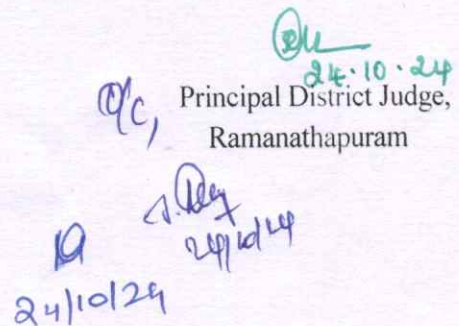 24.10.24
O/C, Principal District Judge,
Ramanathapuram
24/10/24
24/10/24